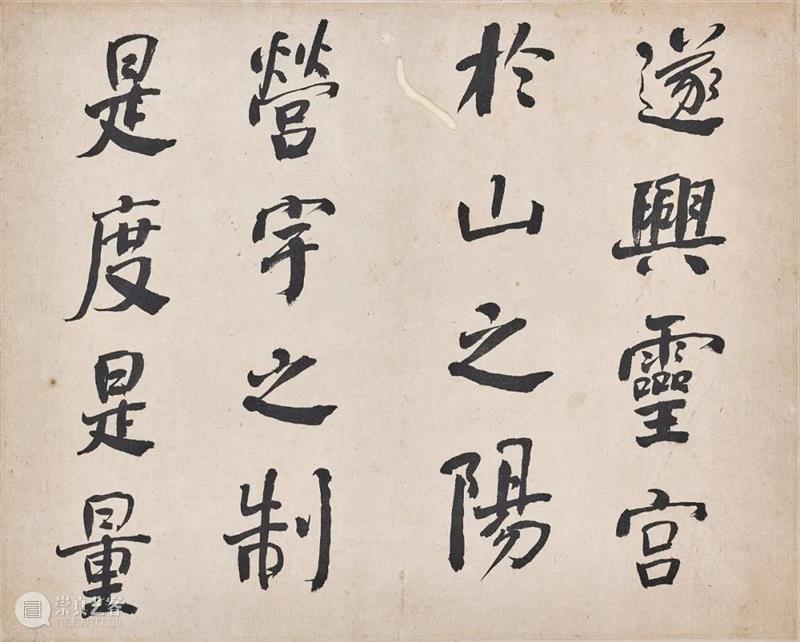 遂興靈宮
於山之陽
營宇之制
是度是量
崇真艺客